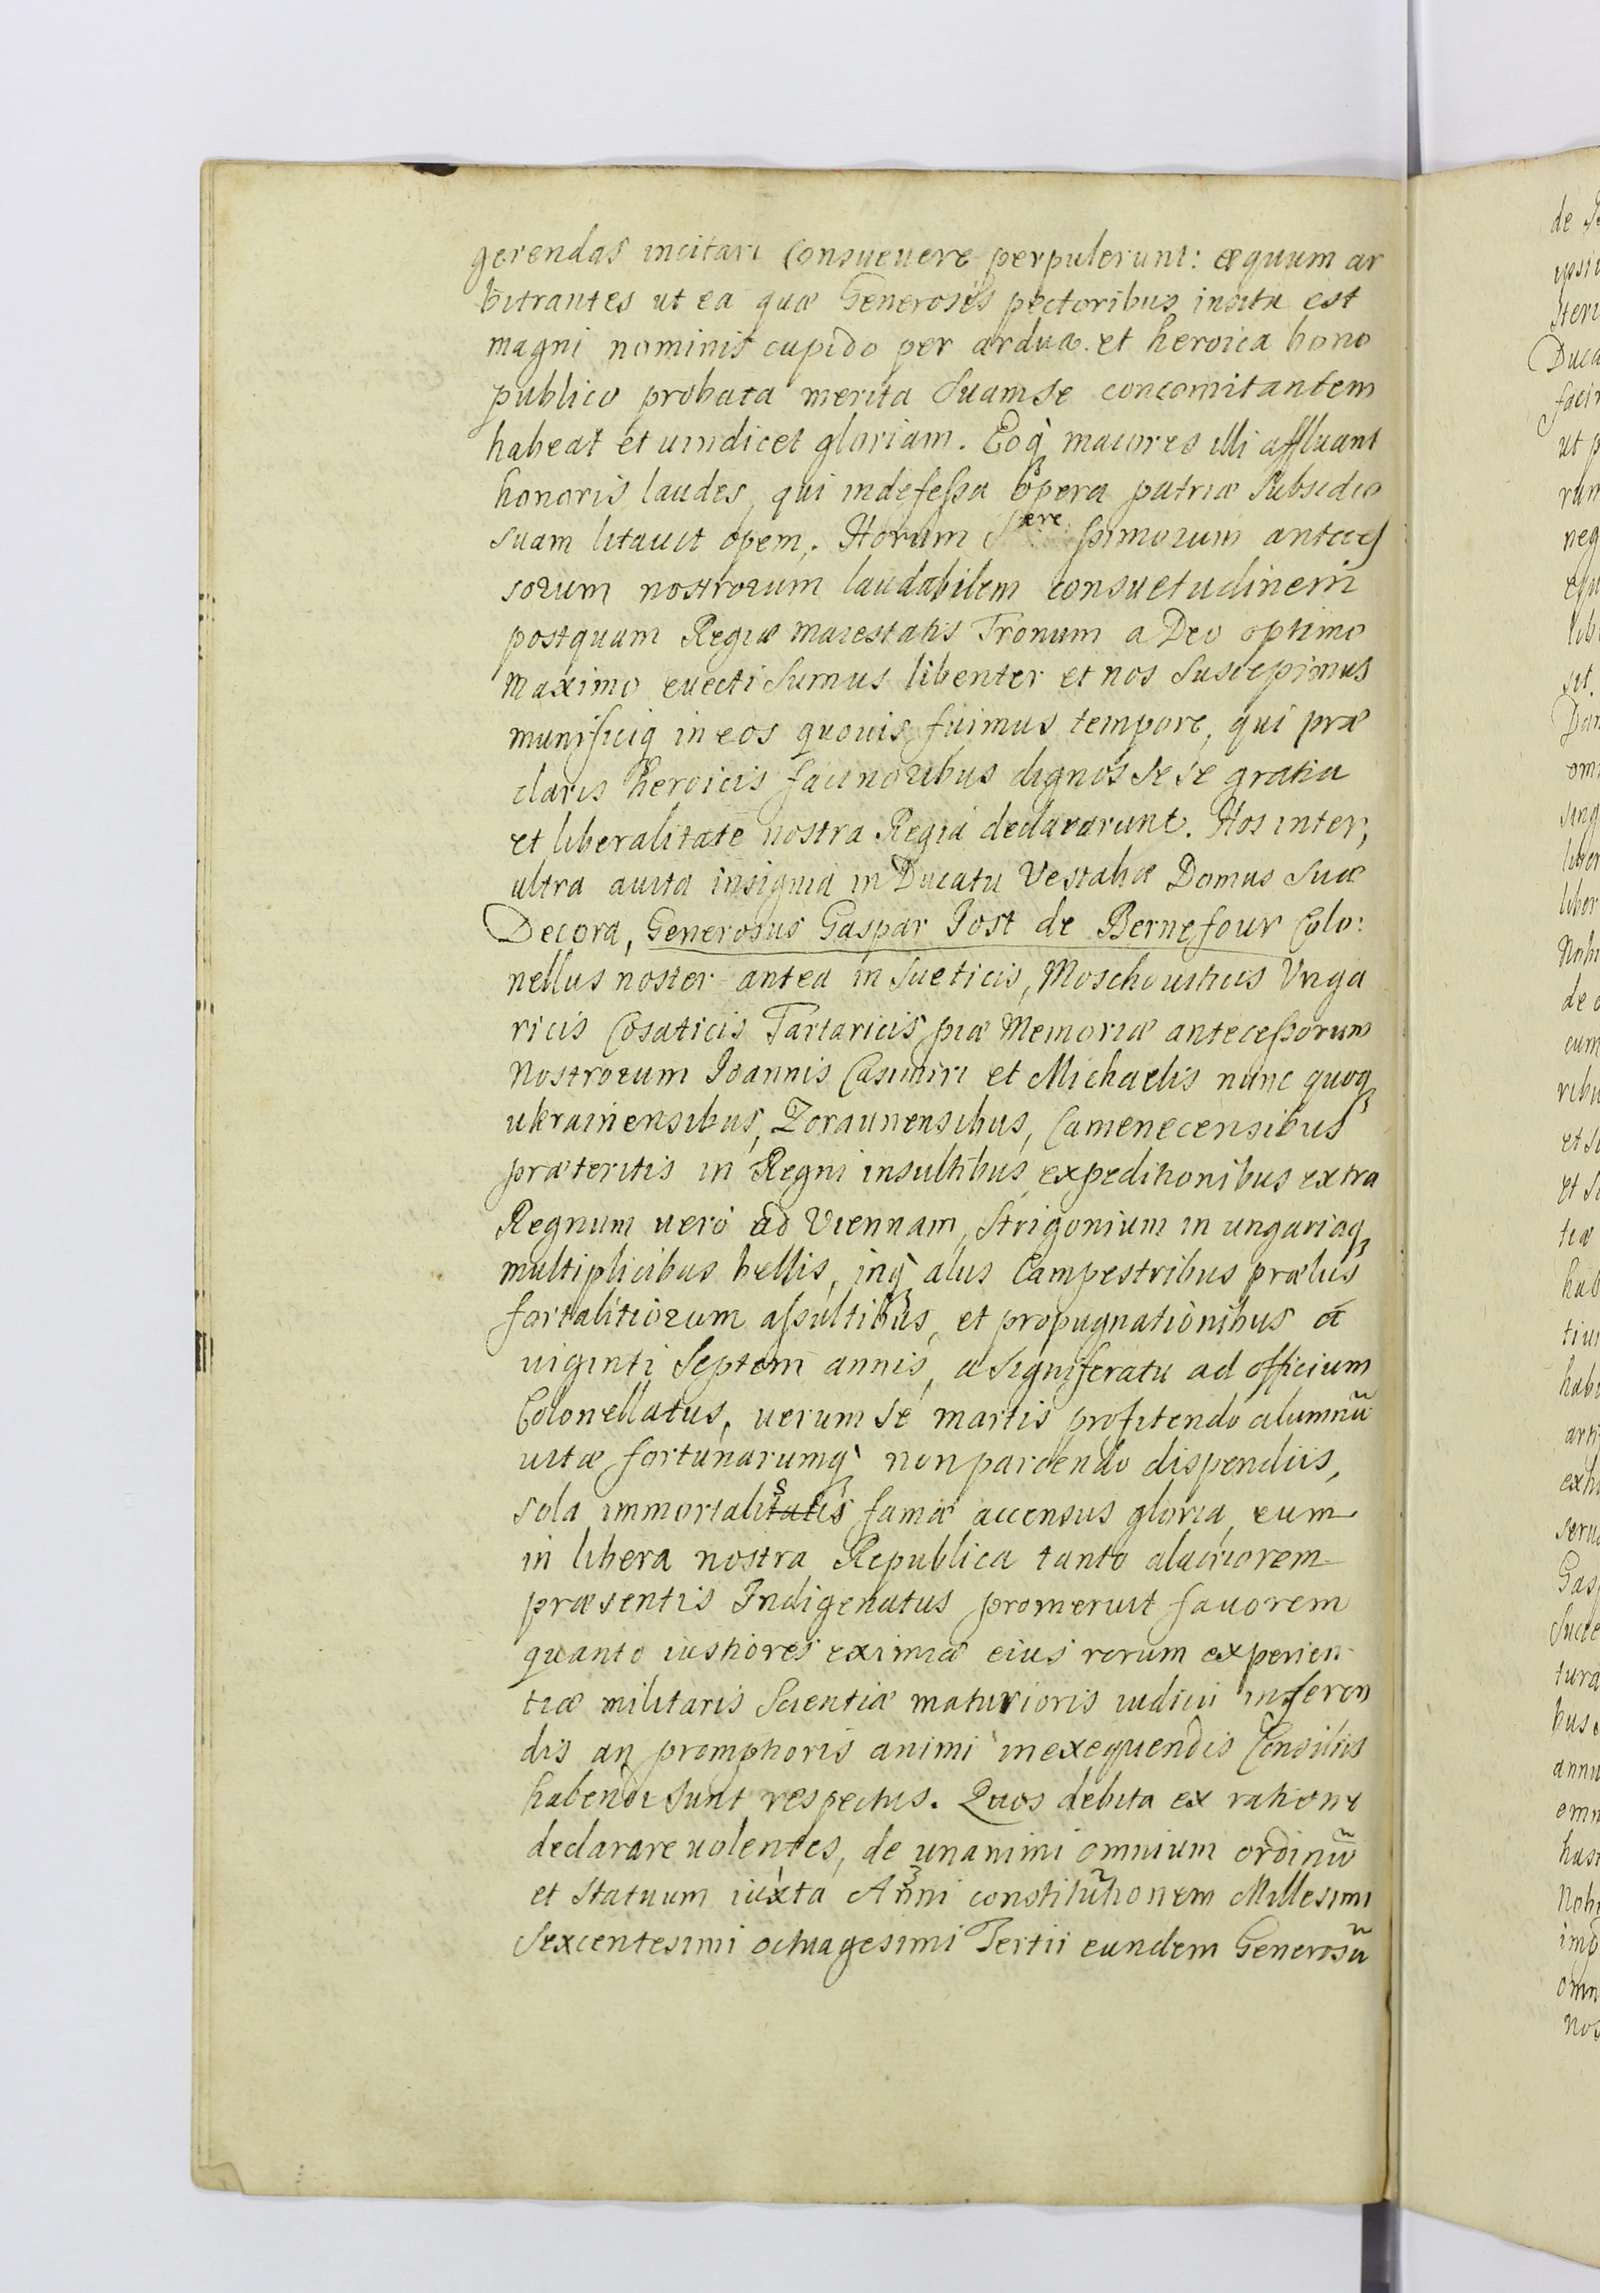 gerendas incitari Consueuere perpulerunt: æquum ar
bitrantes ut ea quæ Generosis pectoribus insita est
magni nominis cupido per ardua et heroica bono
publico probata merita Suam se concomitantem
habeat et uindicet gloriam. Eoq̀ maiores illi affluant
honoris laudes, qui indefessa opera patriæ Subsidio
suam litauit opem. Horum Sere ssimorum anteces
sorum nostrorum laudabilem consuetudinem
postquam Regiæ maiestatis Tronum a Deo optimo
maximo euecti Sumus libenter et nos Suscepimus
munificiq in eos quouis fuimus tempore, qui præ
claris heroicis facinoribus dignos Se se gratia
et liberalitate nostra Regia declararunt. Hos inter,
ultra auita insignia in Ducatu Vestaliæ Domus Suæ
Decora, Generosus Gaspar Jost de Bernefour Colo:
nellus noster antea in Sueticis, Moschouiticis Vnga
ricis Cosaticis Tartaricis piæ Memoriæ antecessorum
Nostrorum Joannis Casimiri et Michaelis nunc quoq
ukrainensibus, Zoraunensibus, Camenecensibus
præteritis in Regni insultibus expeditionibus extra
Regnum uero ad Viennam, Strigonium in ungariaq
multiplicibus bellis, inq̀ alus Campestribus prælus
fortalitiorum assultibus, et propugnationibus a
uiginti Septem annis, a Signiferatu ad officium
Colonellatus, uerum se martis profitendo alumnũ
uitæ fortunarumq̀ non parcendo dispendiis,
sola immortalitatis famæ accensus gloria, eum
in libera nostra Republica tanto alacriorem
præsentis Indigenatus promeruit fauorem
quanto iustiores eximiæ eius rerum experien
tiæ militaris Scientiæ maturioris iudicii inferen
dis an promptioris animi in exequendis Consiliis
habendi sunt respectus. Quos debita ex ratione
declarare uolentes, de unanimi omnium ordinũ
et Statuum iuxta Anni constitutionem Millesimi
Sexcentesimi octuagesimi Tertii eundem Generosũ